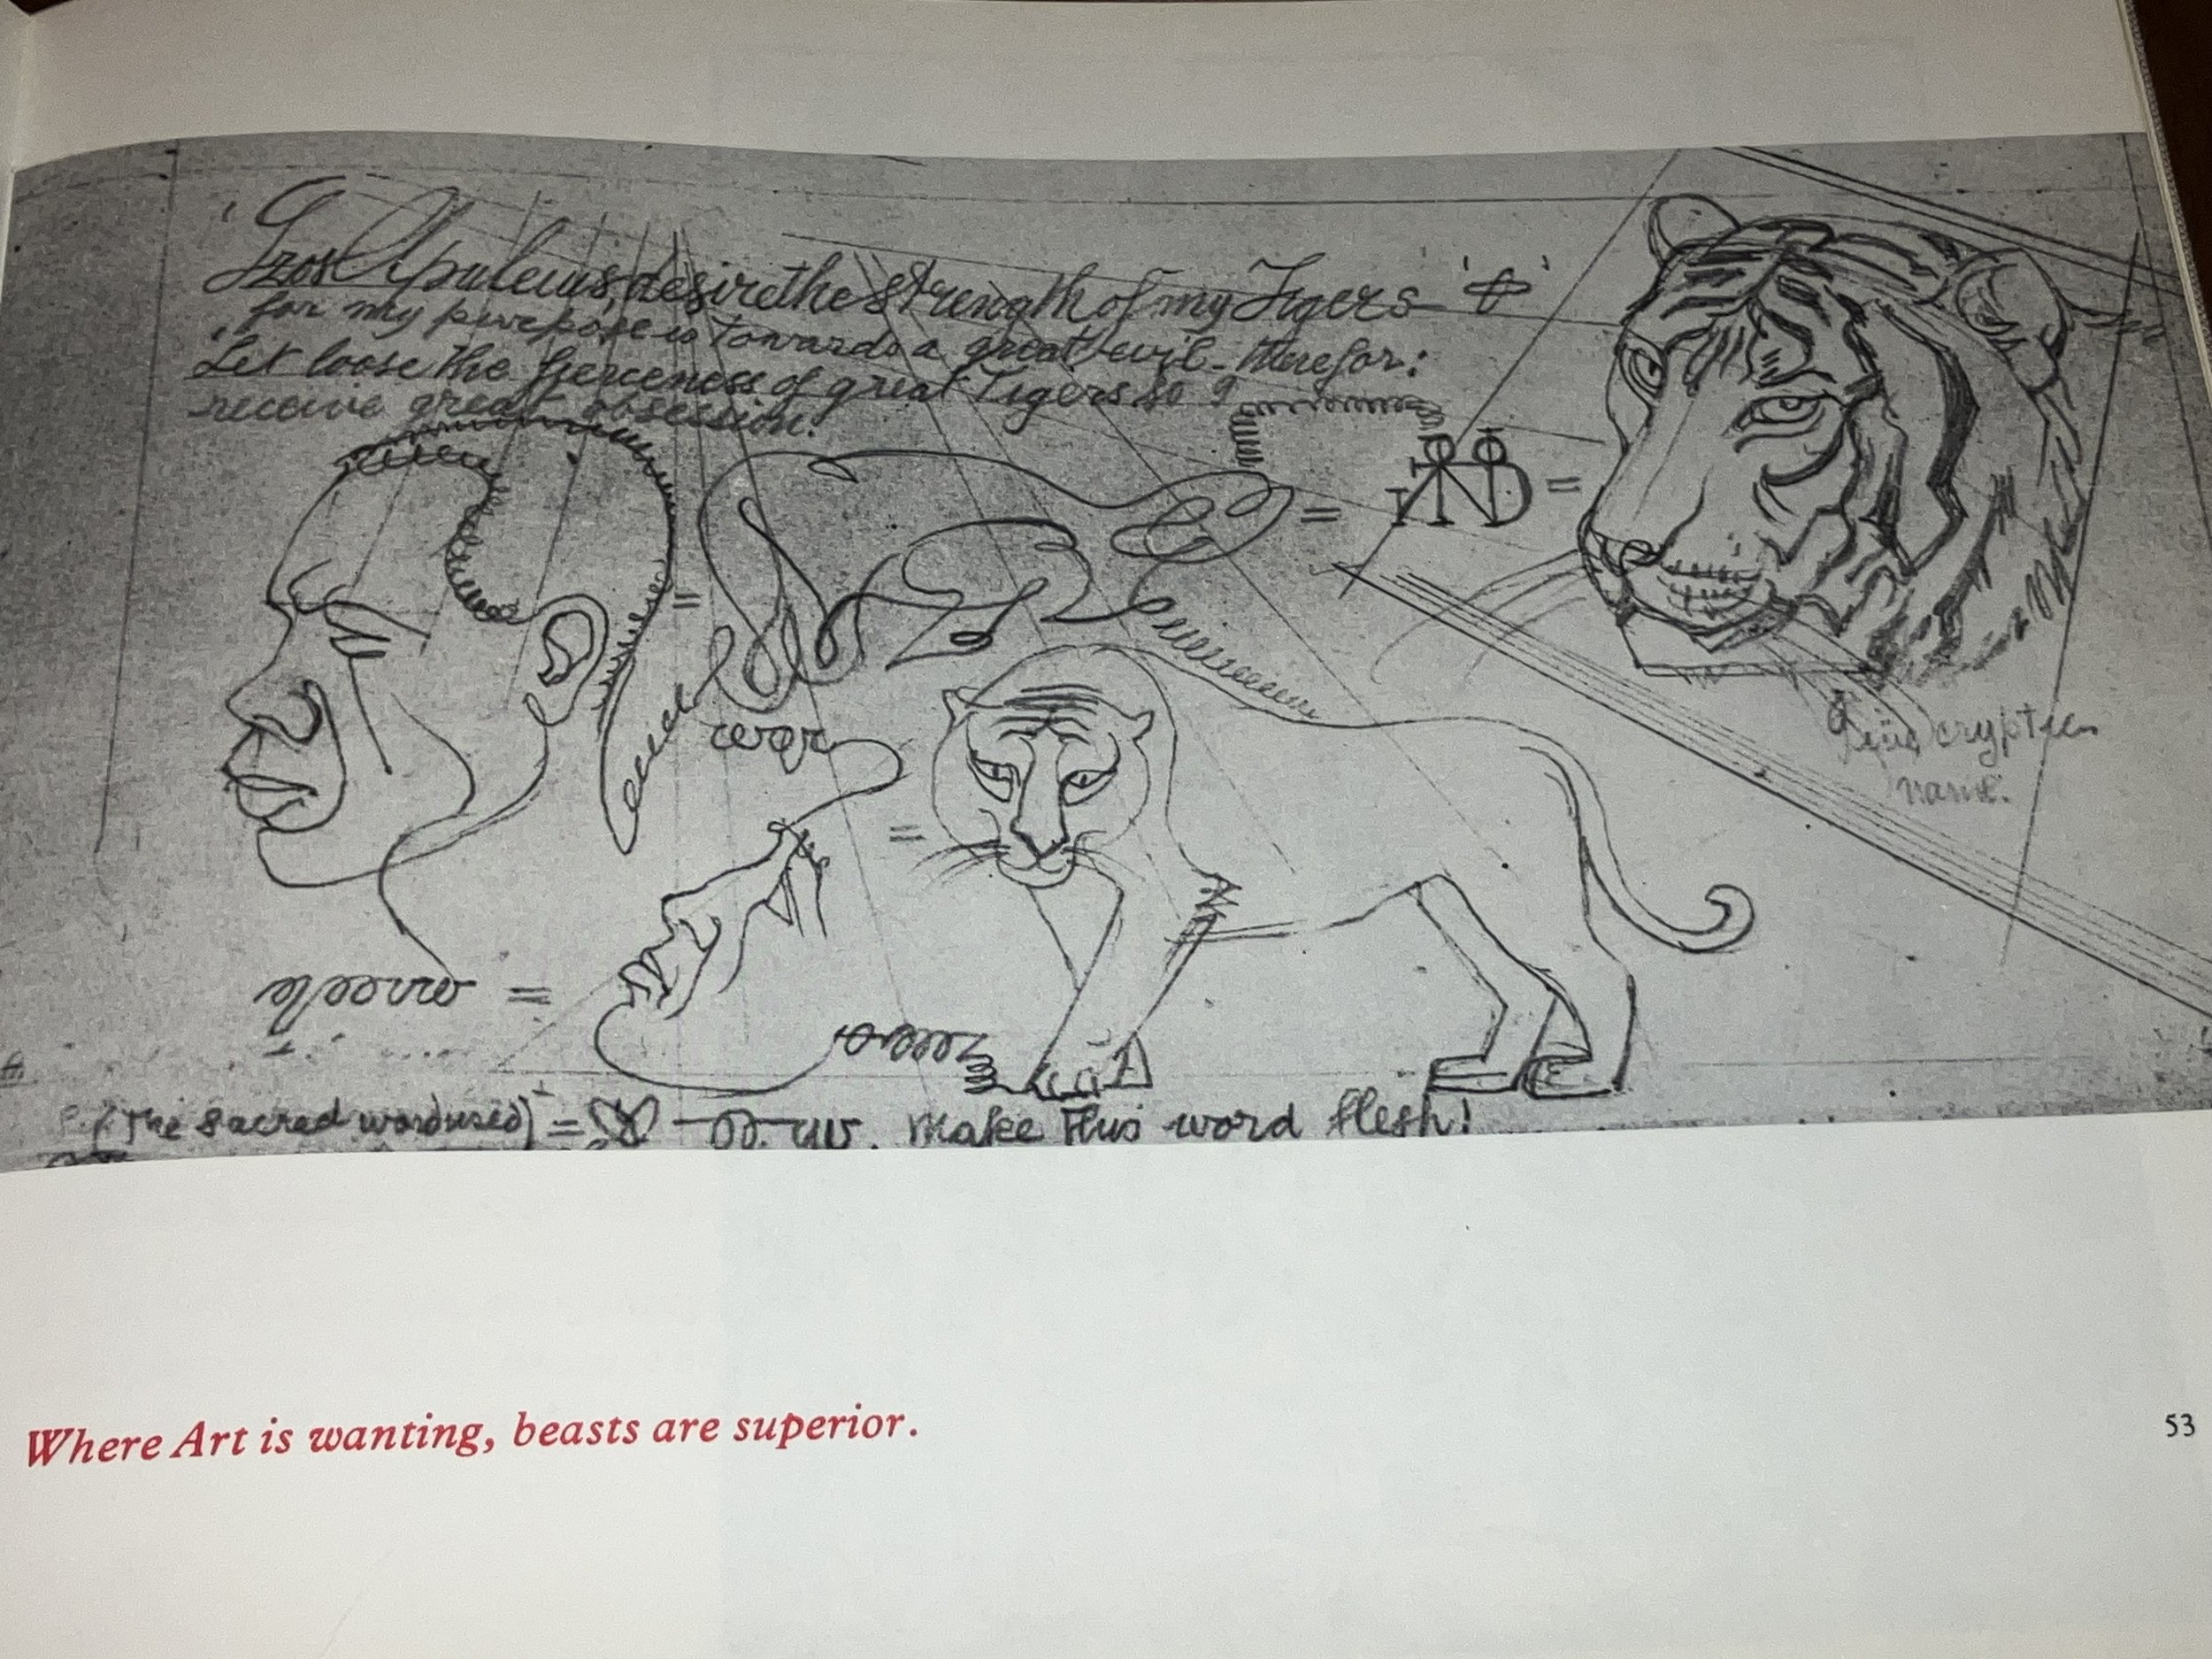 'I Zos Apuleius, desire the strength of my Tigers
for my purpose is towards a great evil - therefor:
'Let loose the fierceness of great Tigers so I
receive great obsession!
=
=
=
=
=
=
cryptic
name.
(The sacred word used) =
Make this word flesh!
Where Art is wanting, beasts are superior.
53